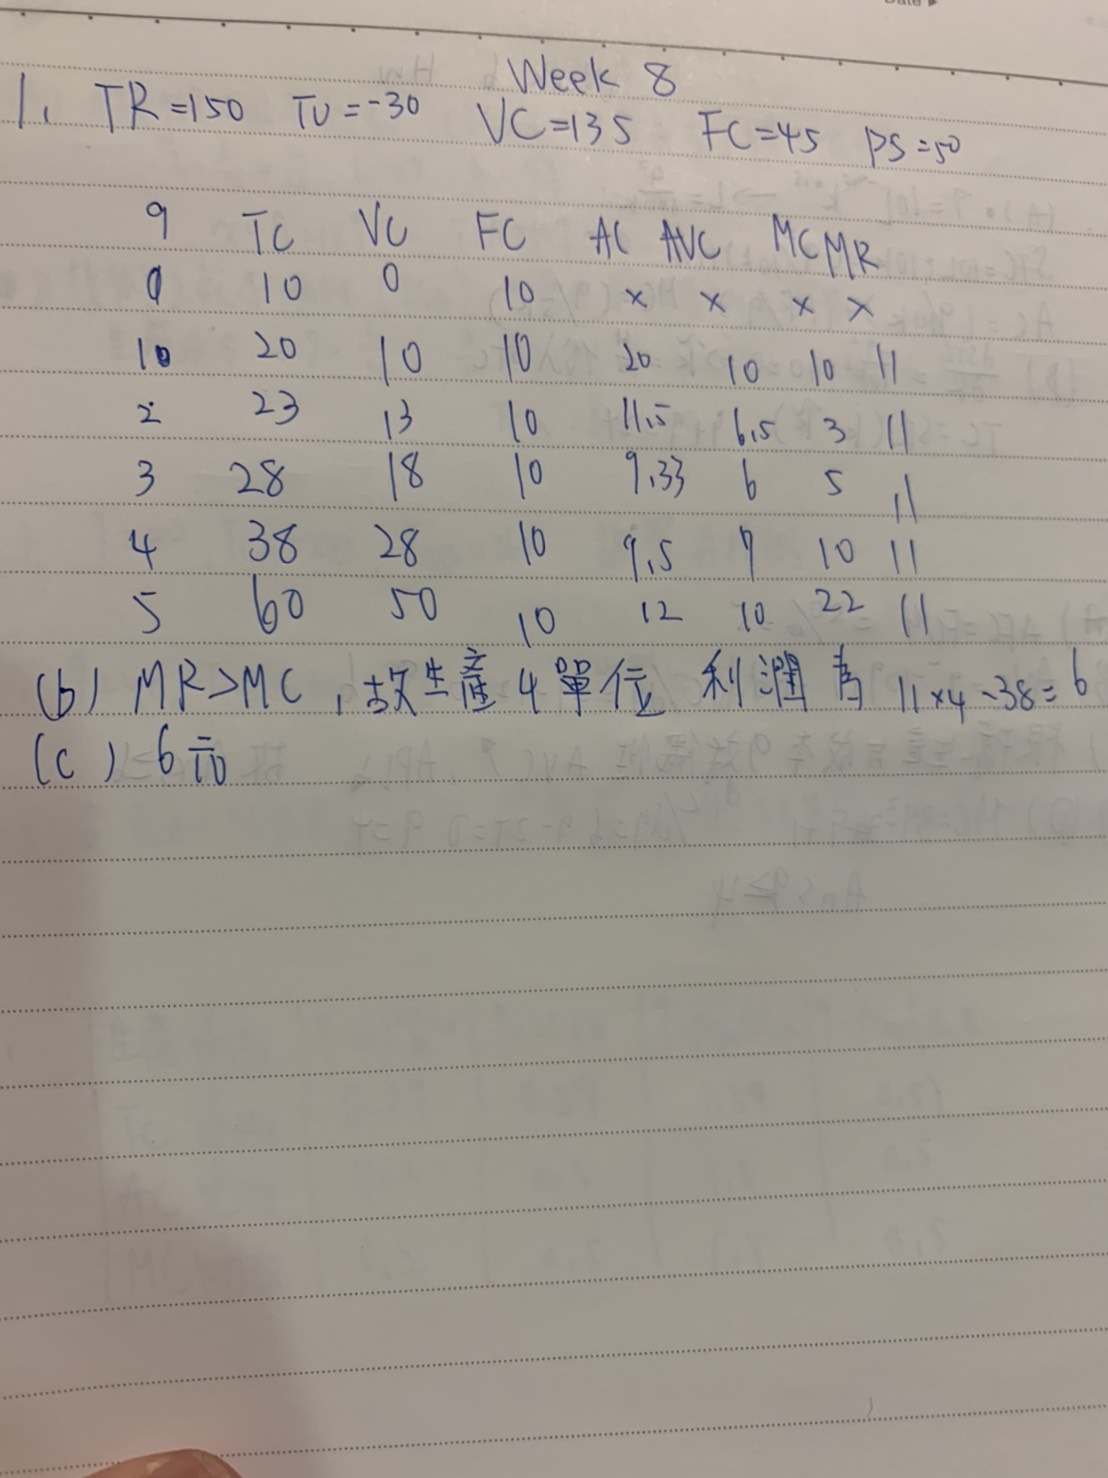 Week 8
1. TR=150 TU=-30 VC=135 FC=45 PS=50
q TC VC FC AC AVC MC MR
0 10 0 10 × × × ×
10 20 10 10 20 10 10 11
2 23 13 10 11.5 6.5 3 11
3 28 18 10 9.33 6 5 11
4 38 28 10 9.5 7 10 11
5 60 50 10 12 10 22 11
(b) MR>MC，故生產4單位 利潤為 11×4-38=6
(c) 6元